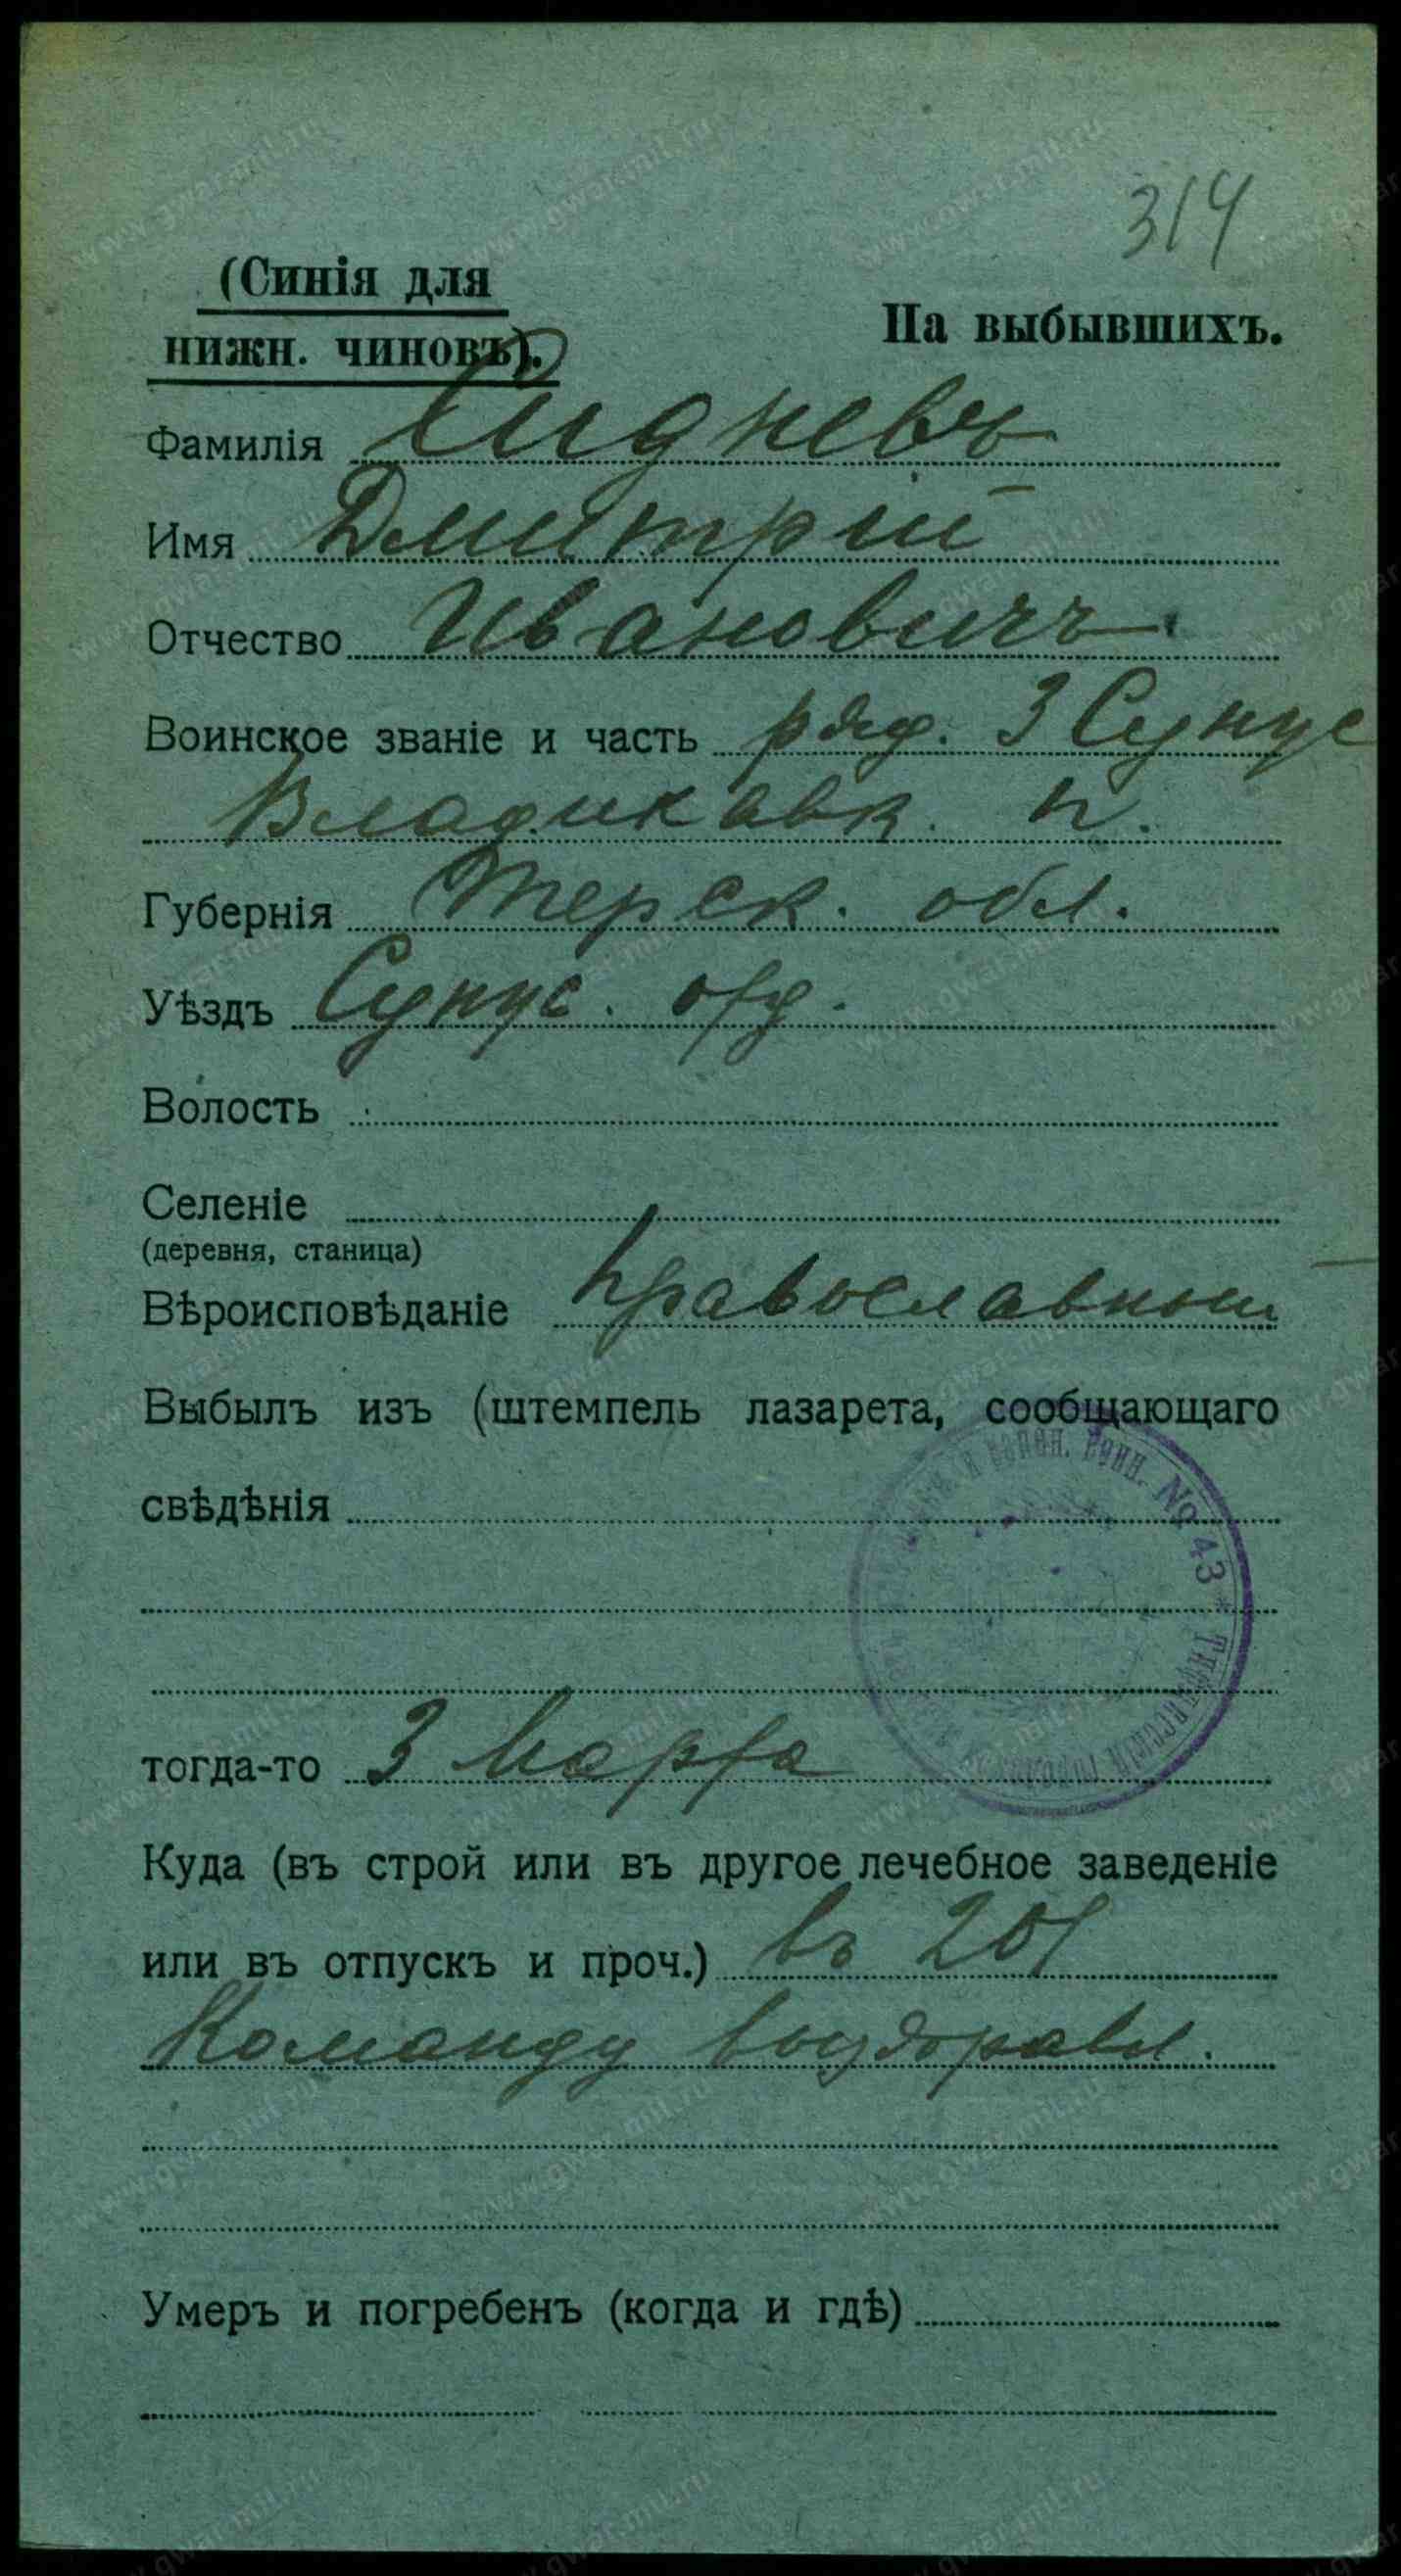 314
(Синія для
нижн. чиновъ).
На выбывшихъ.
Фамилія Сидневъ
Имя Дмитрій
Отчество Ивановичъ
Воинское званіе и часть ряд. 3 Сунже
Владикавк. п.
Губернія Терск. обл.
Уѣздъ Сунже. отд.
Волость
Селеніе
(деревня, станица)
Вѣроисповѣданіе православный
Выбылъ изъ (штемпель лазарета, сообщающаго
свѣдѣнія
№ 43 * Тифлисскій городской
тогда-то 3 Марта
Куда (въ строй или въ другое лечебное заведеніе
или въ отпускъ и проч.) въ 201
Команду выздоравл.
Умеръ и погребенъ (когда и гдѣ)
www.gwar.mil.ru